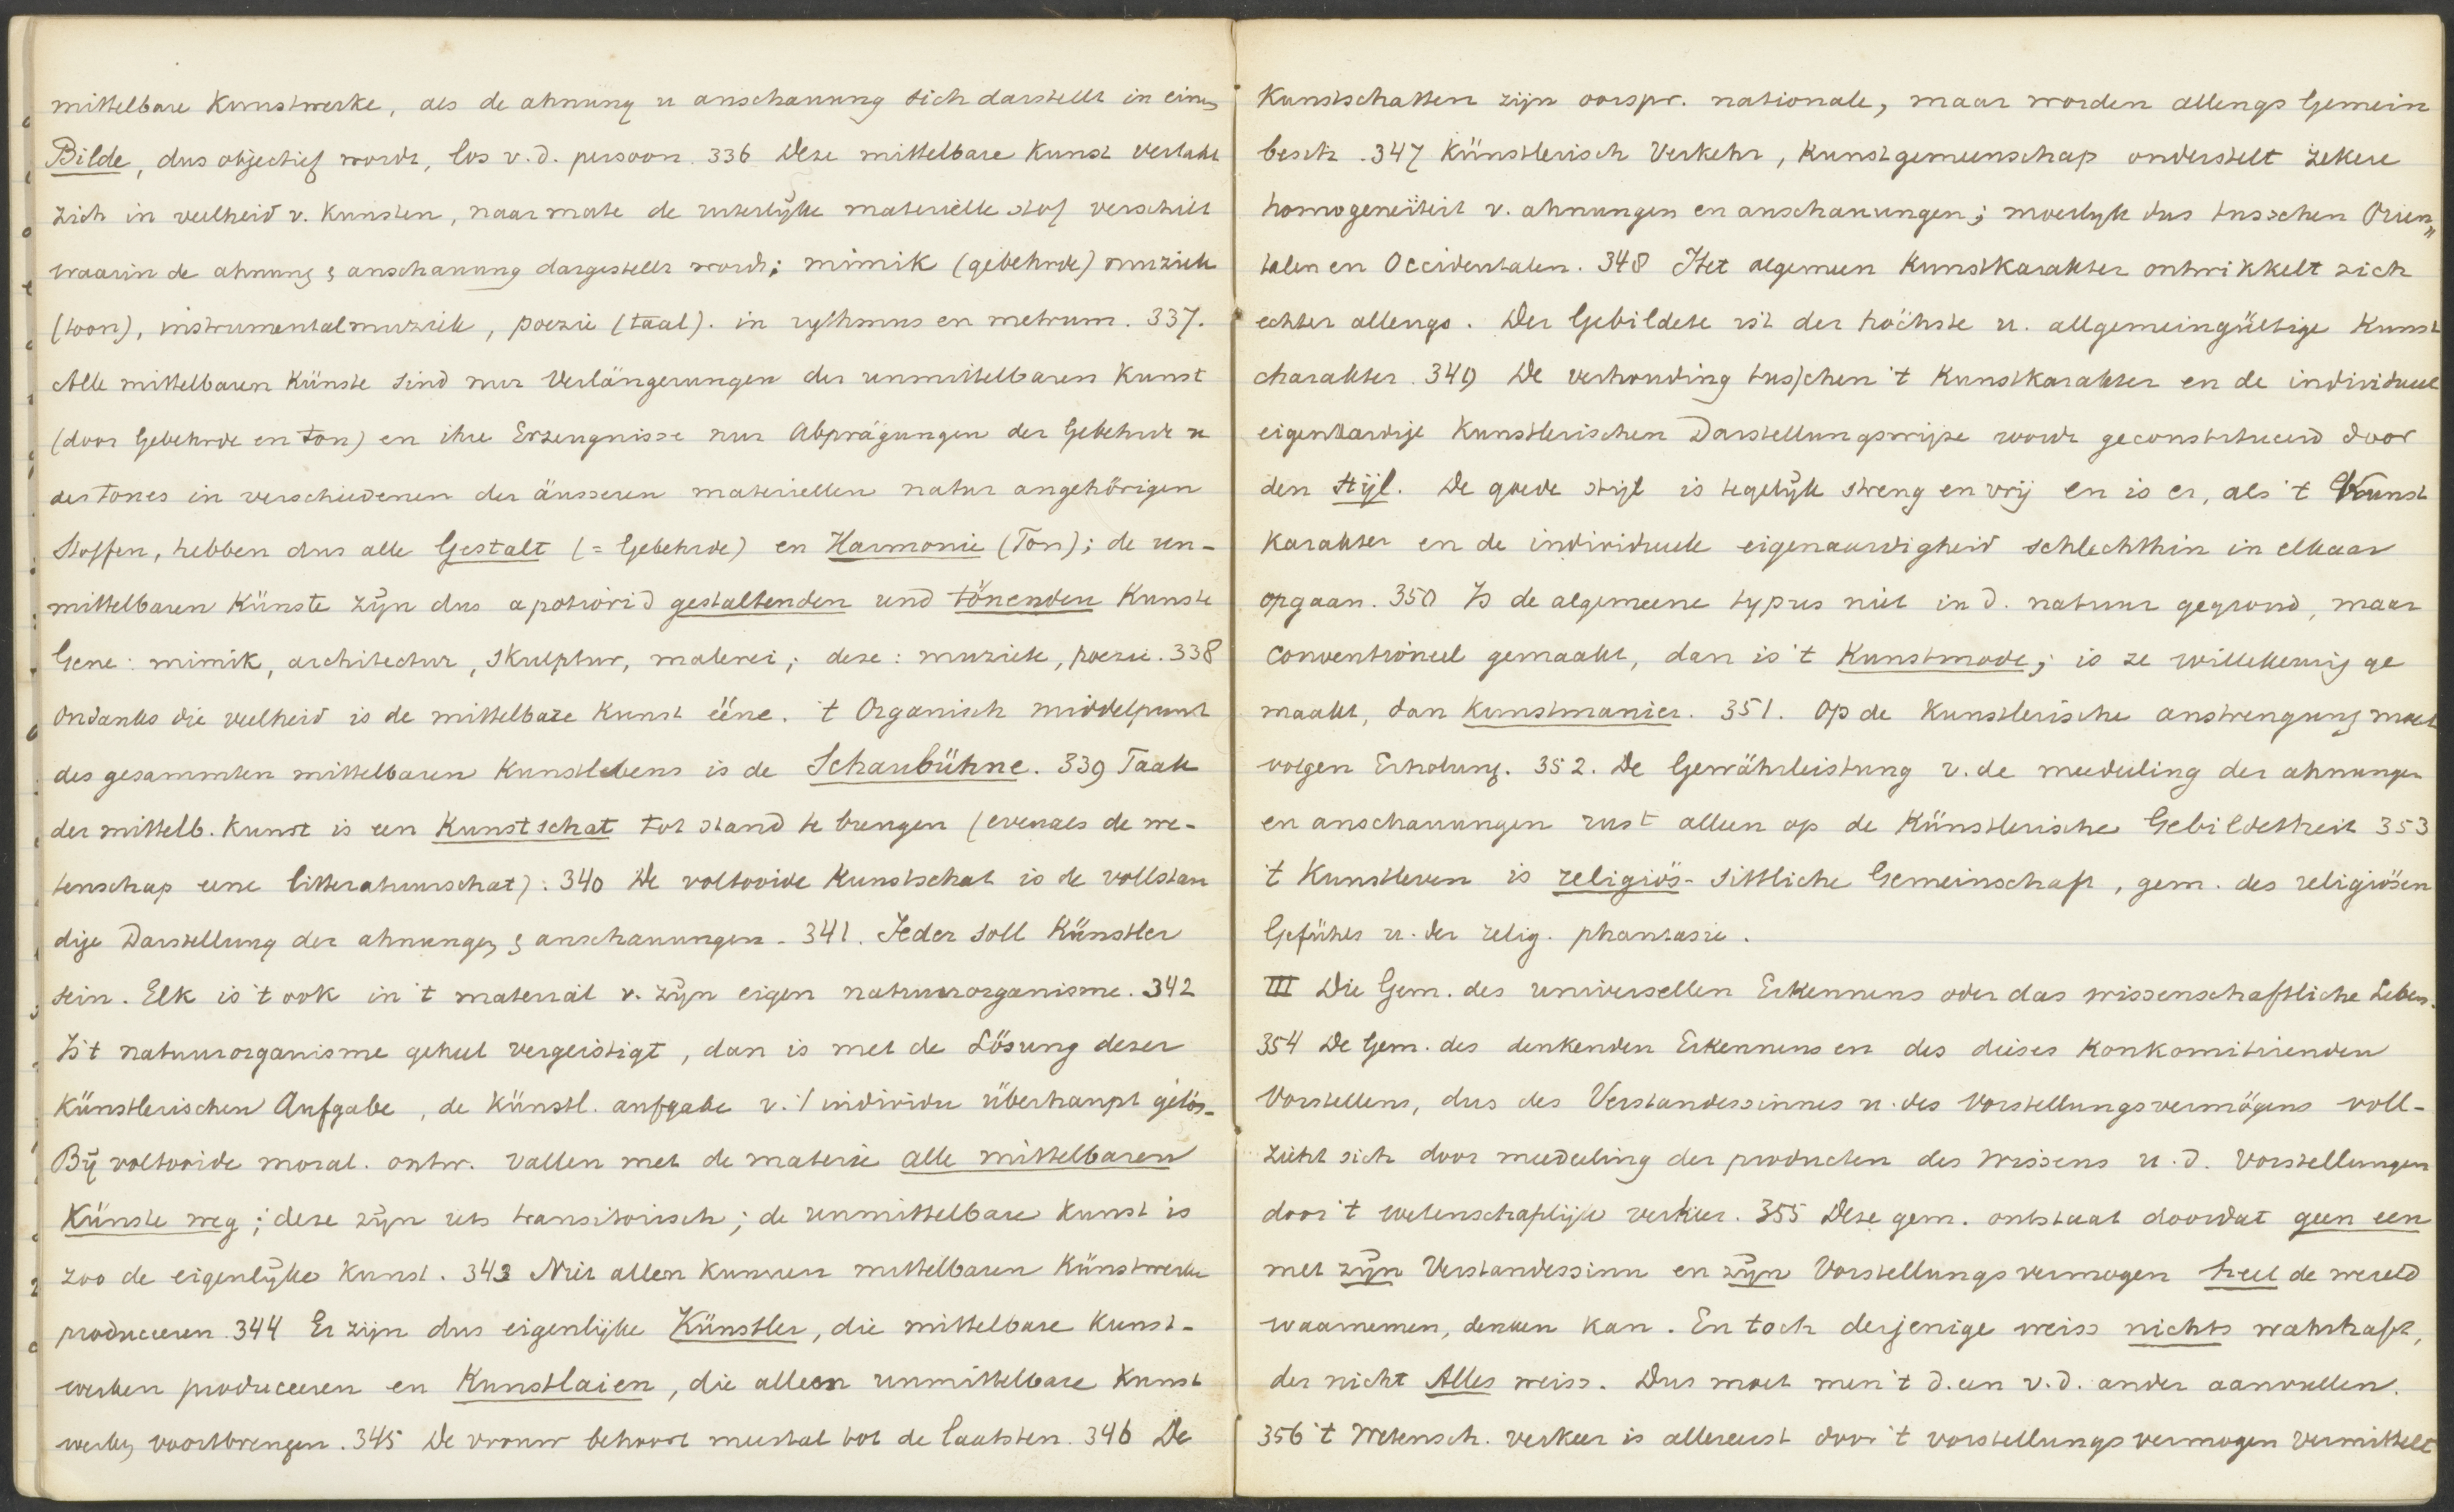 mittelbare Kunstwerke, als de ahnung u anschauung sich darstellt in einem
Bilde, dus objectief wordt, los v. d. persoon. 336 Deze mittelbare Kunst vertakt
zich in veelheid v. Kunsten, naarmate de uiterlijke materiëlle stof verschilt
waarin de ahnung & anschauung dargestellt wordt; mimik (gebehrde) muziek
(toon), instrumentalmuziek, poezie (taal). in rythmus en metrum. 337.
Alle mittelbaren Künste sind nur Verlängerungen der unmittelbaren Kunst
(door Gebehrde en ton) en ihre Erzeugnisse nur Abprägungen der Gebehrde u
des tones in verschiedenen der äusseren materiellen natur angehörigen
Stoffen, hebben dus alle Gestalt (= Gebehrde) en Harmonie (Ton); de un-
mittelbaren Künste zijn dus apotiorid gestaltenden und tönenden Kunste
Gene: mimik, architectur, skulptur, malerei; deze: muziek, poezie. 338
Ondanks die veelheid is de mittelbare Kunst ééne. 't Organisch middelpunt
des gesammten mittelbaren Kunstlebens is de Schaubühne. 339 Taak
der mittelb. Kunst is een Kunstschat tot stand te brengen (evenals de we-
tenschap eene litteratuurschat). 340 De voltooide Kunstschat is de vollstan
dige Darstellung der ahnungen & anschauungen. 341. Jeder soll Künstler
sein. Elk is 't ook in 't materiäl v. zijn eigen natuurorganisme. 342
Is 't natuurorganisme geheel vergeistigt, dan is met de Lösung dezer
Künstlerischen Aufgabe, de künstl. aufgabe v. 't individu überhaupt gelös-
Bij voltooide moral. ontw. vallen met de materie alle mittelbaren
Künste weg; deze zijn iets transitorisch; de unmittelbare Kunst is
zoo de eigenlijke Kunst. 343 Niet allen kunnen mittelbaren Künstwerke
produceeren. 344 Er zijn dus eigenlijke Künstler, die mittelbare Kunst-
werken produceeren en Kunstlaien, die alleen unmittelbare Kunst
werken voortbrengen. 345 De vrouw behoort meestal tot de laatsten. 346 De
Kunstschatten zijn oorspr. nationale, maar worden allengs Gemein
besitz. 347 Künstlerisch Verkehr, Kunstgemeenschap onderstelt zekere
homogeneïteit v. ahnungen en anschauungen; moeilijk dus tusschen Orien„
talen en Occidentalen. 348 Het algemeen Kunstkarakter ontwikkelt zich
echter allengs. Der Gebildete ist der höchste u. allgemeingültige Kunst
charakter. 349 De verhouding tusschen 't Kunstkarakter en de individueel
eigenaardige Kunstlerischen Darstellungswijze wordt geconstitueerd door
den stijl. De goede stijl is tegelijk streng en vrij en is er, als 't Kunst
Karakter en de individueele eigenaardigheid schlechthin in elkaar
opgaan. 350 Is de algemeene typus niet in d. natuur gegrond, maar
conventioneel gemaakt, dan is 't Kunstmode; is ze willekeurig ge
maakt, dan Kunstmanier. 351. Op de Kunstlerische anstrengung moet
volgen Erholung. 352. De Gewährleistung v. de meedeeling der ahnungen
en anschauungen rust alleen op de Künstlerische Gebildetheit 353
't Kunstleven is religiös-sittliche Gemeinschaft, gem. des religiösen
Gefühls u. der relig. phantasie.
III Die Gem. des universellen Erkennens oder das wissenschaftliche Leben.
354 De Gem. des denkenden Erkennens en des dieses Konkomitirenden
Vorstellens, dus des Verstandessinnes u. des Vorstellungsvermögens voll-
zieht sich door meedeeling der producten des Wissens u. d. Vorstellungen
door 't wetenschaplijke verkeer. 355 Deze gem. ontstaat doordat geen een
met zijn Verstandessinn en zijn Vorstellungsvermogen heel de wereld
waarnemen, denken kan. En toch derjenige weiss nichts wahrhaft,
der nicht Alles weiss. Dus moet men 't d. een v. d. ander aanvullen.
356 't Wetensch. verkeer is allereerst door 't vorstellungsvermogen vermittelt